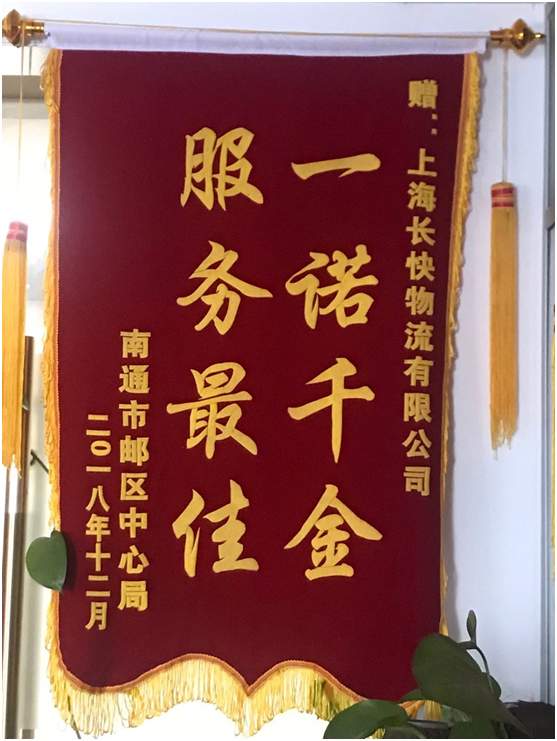 赠：上海长快物流有限公司
一诺千金
服务最佳
南通市邮区中心局
二0一八年十二月